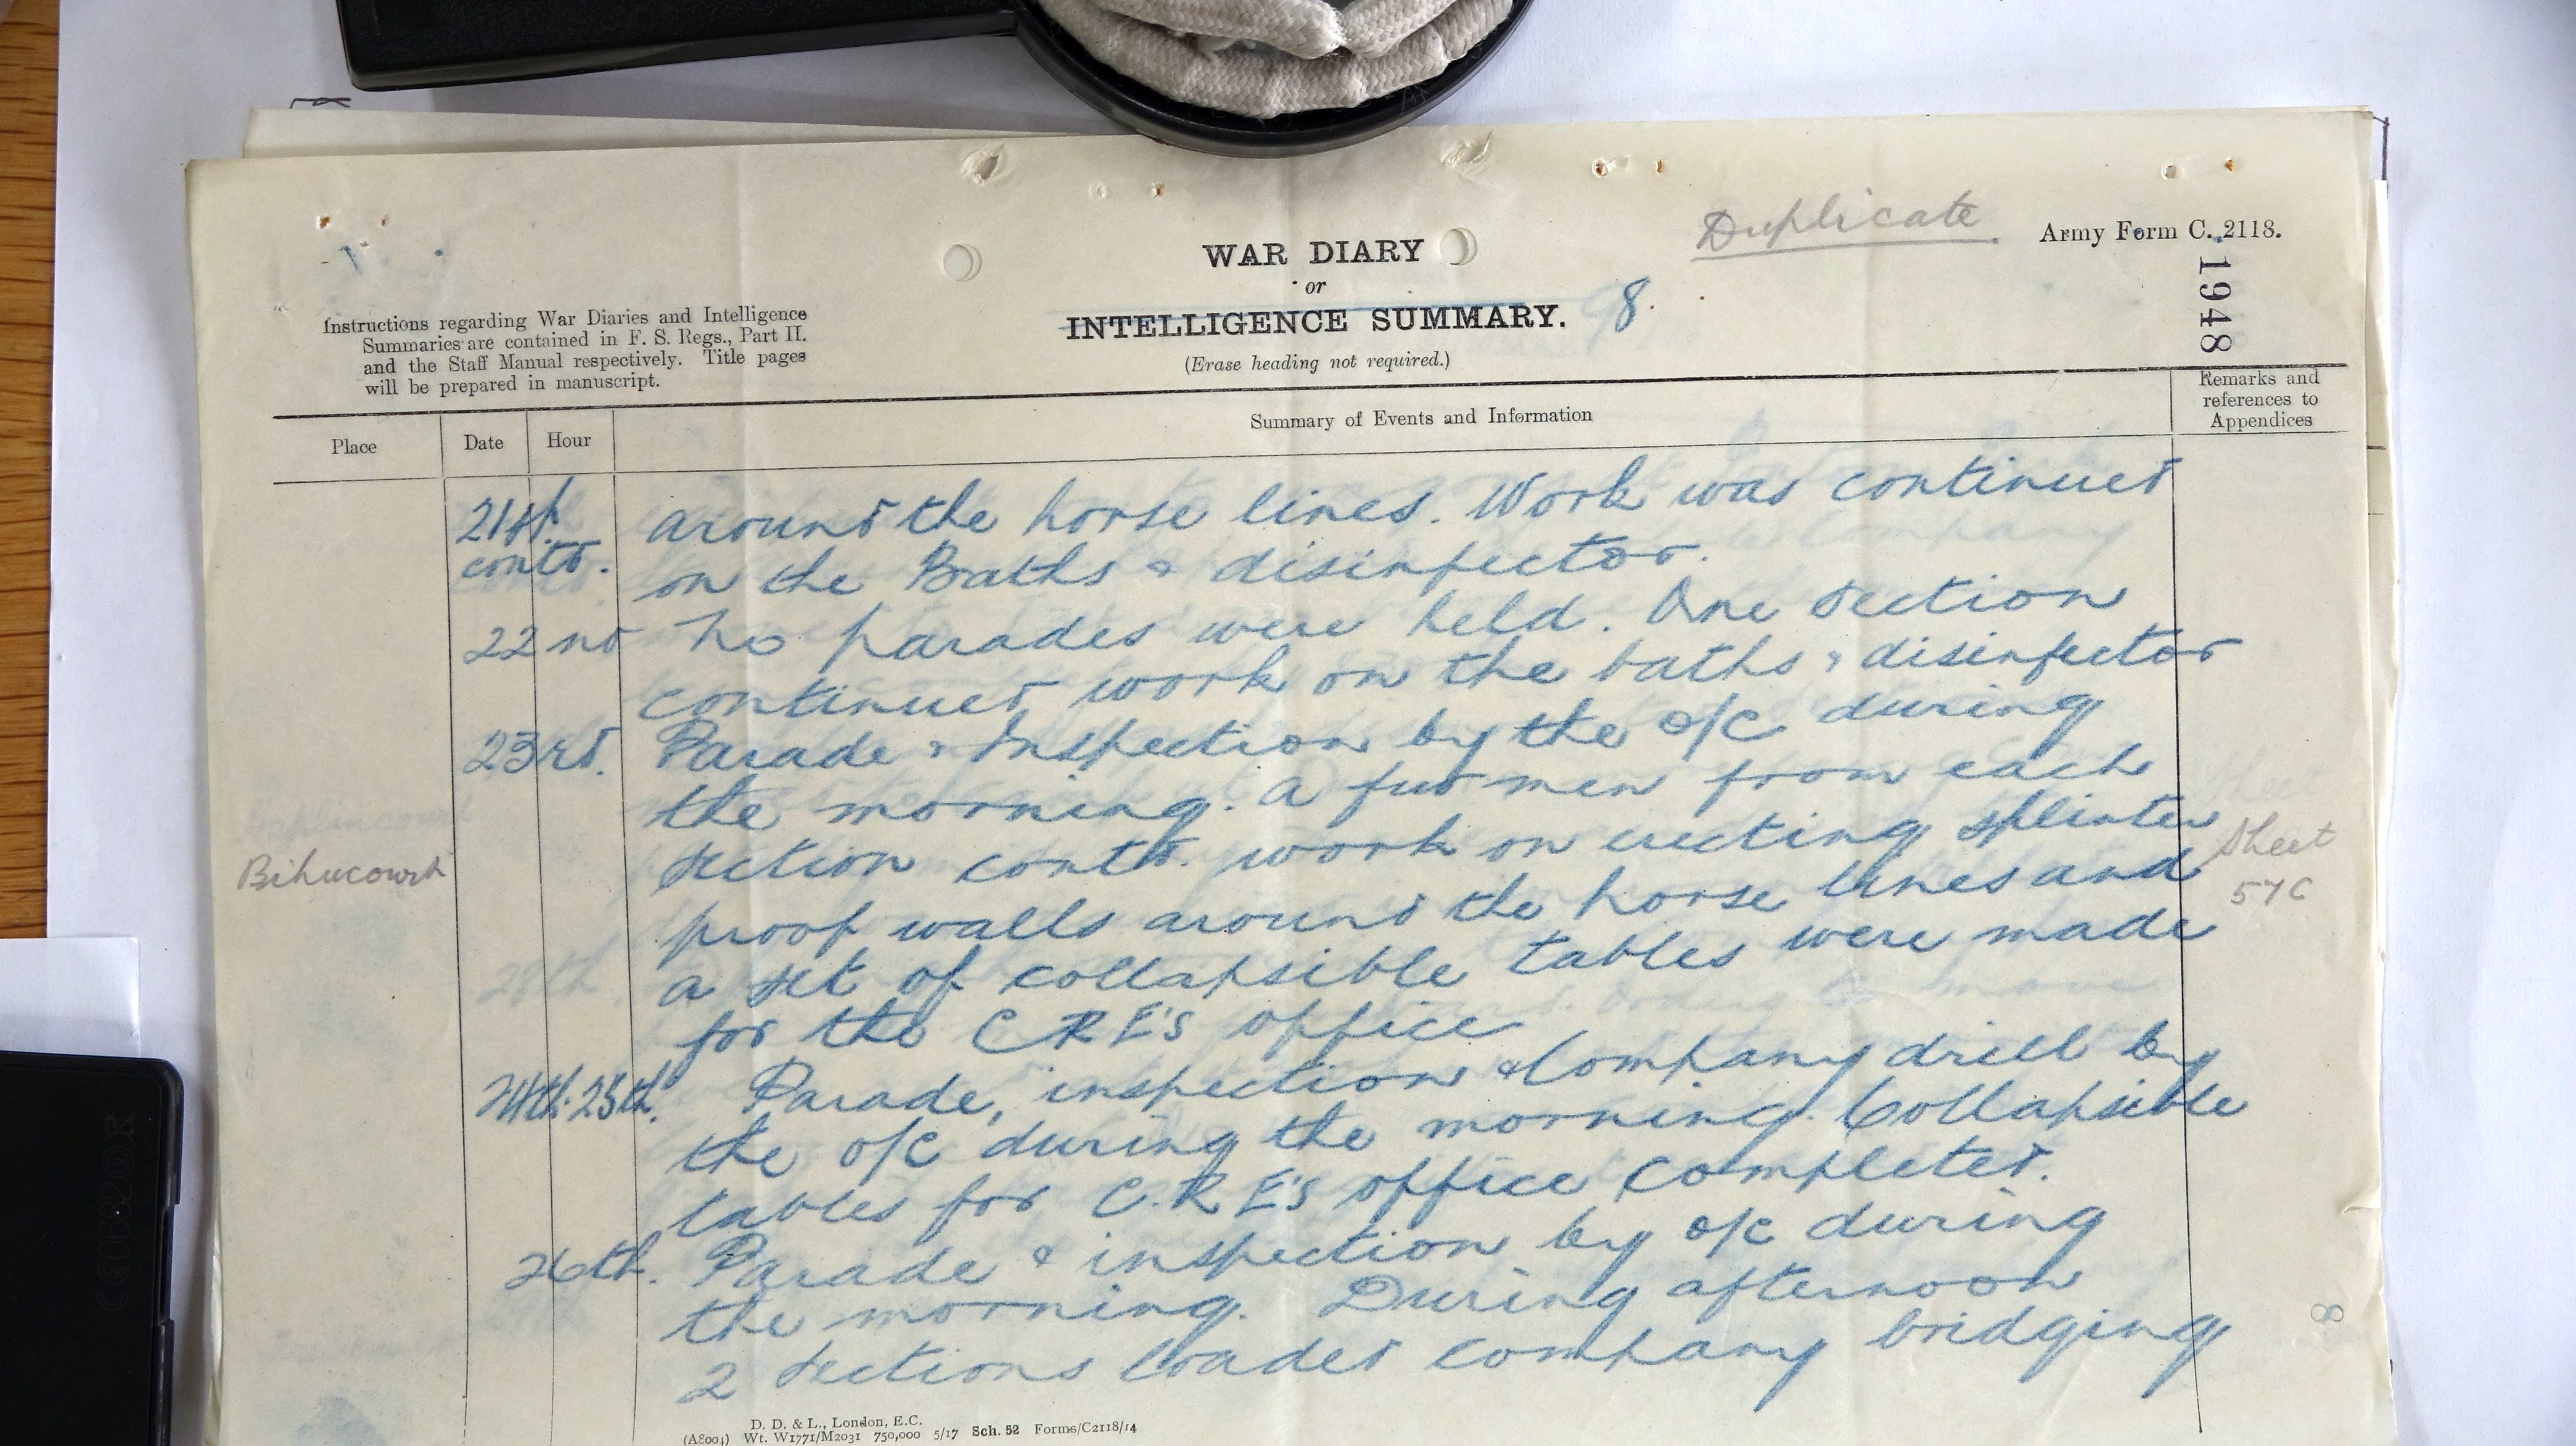 Duplicate
Army Form C. 2118.
WAR DIARY
or
INTELLIGENCE SUMMARY.
8.
(Erase heading not required.)
1948
Instructions regarding War Diaries and Intelligence
Summaries are contained in F. S. Regs., Part II.
and the Staff Manual respectively. Title pages
will be prepared in manuscript.
Place
Date
Hour
Summary of Events and Information
Remarks and
references to
Appendices
21st around the horse lines. Work was continued
contd. on the Baths & disinfector.
22nd No parades were held. One section
continued work on the baths & disinfector
23rd. Parade & Inspection by the o/c during
the morning. A few men from each
section contd. work on erecting splinter
Bihucourt
Sheet
57C
proof walls around the horse lines and
a set of collapsible tables were made
for the CRE's office
24th. 25th. Parade, inspection & Company drill by
the o/c during the morning. Collapsible
tables for C.R.E's office completed.
26th. Parade & inspection by o/c during
the morning. During afternoon
2 sections loaded company bridging
8
D. D. & L., London, E.C.
(A8004) Wt. W1771/M2031 750,000 5/17 Sch. 52 Forms/C2118/14